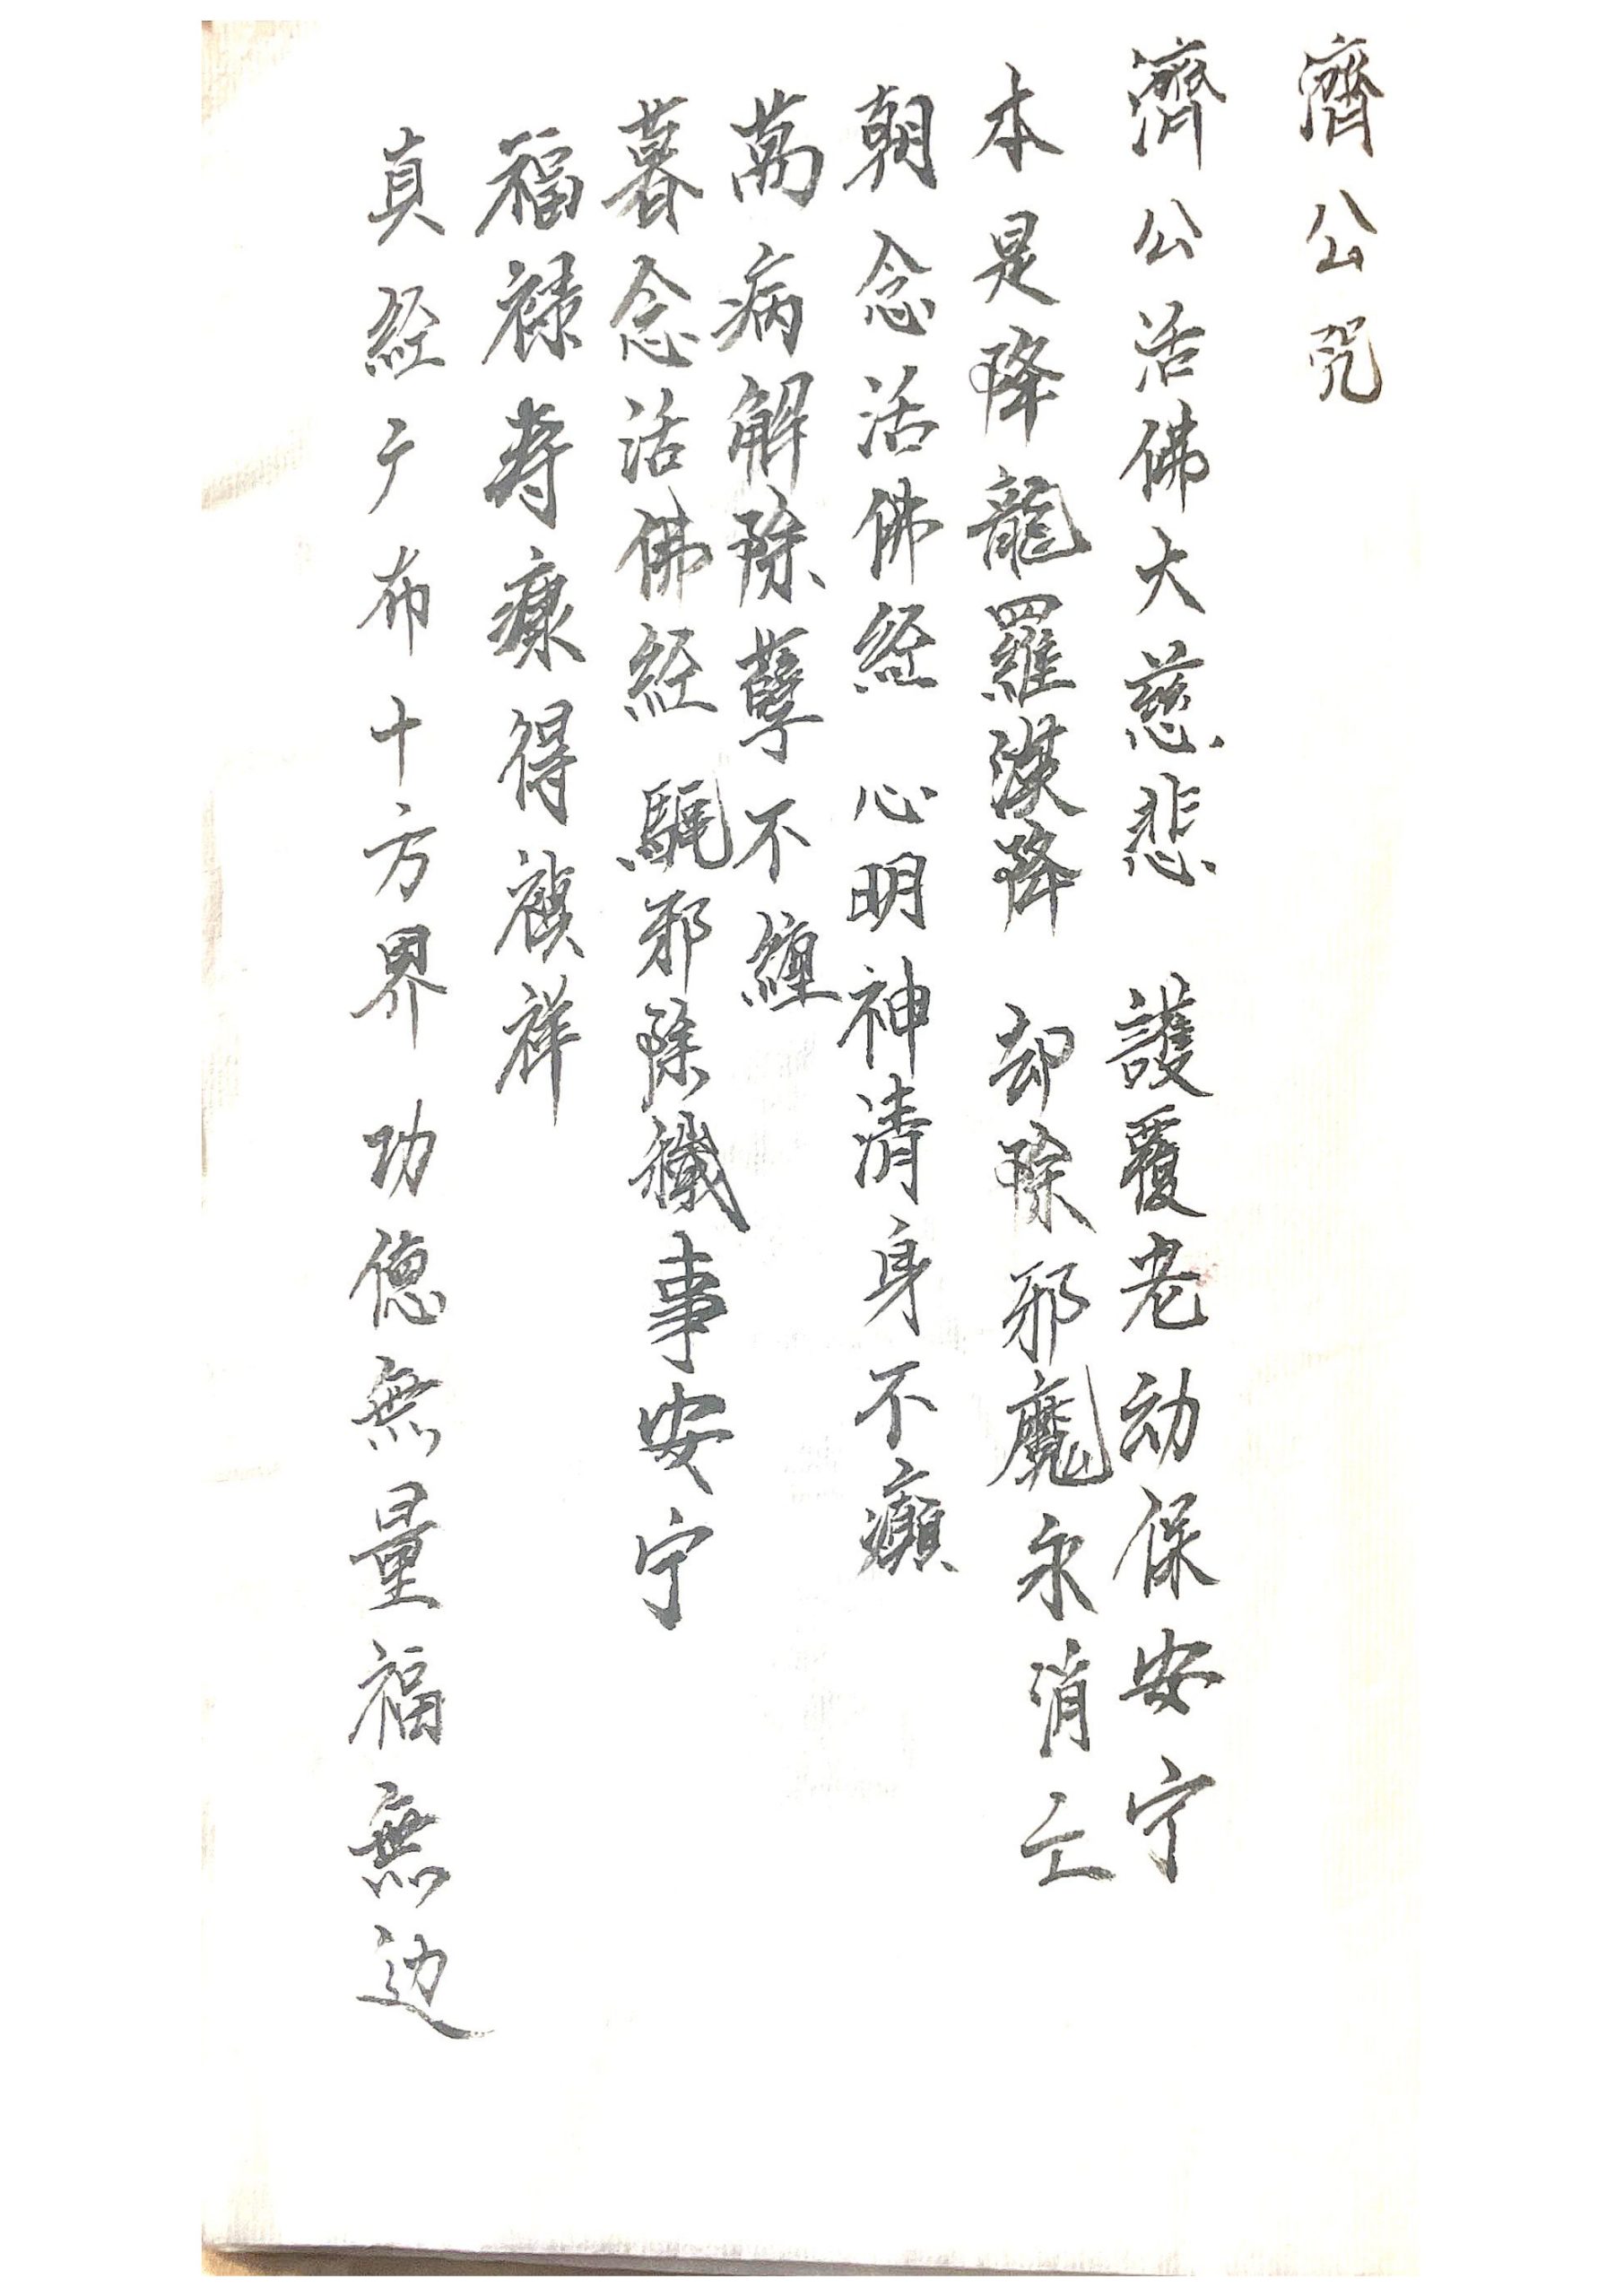 濟公咒
濟公活佛大慈悲 護覆老幼保安宁
本是降龍羅漢降 却除邪魔永消亡
朝念活佛経 心明神清身不癲
萬病解除孽不纏
暮念活佛経 驅邪除殲事安宁
福禄寿康得禎祥
真経广布十方界 功德無量福無边